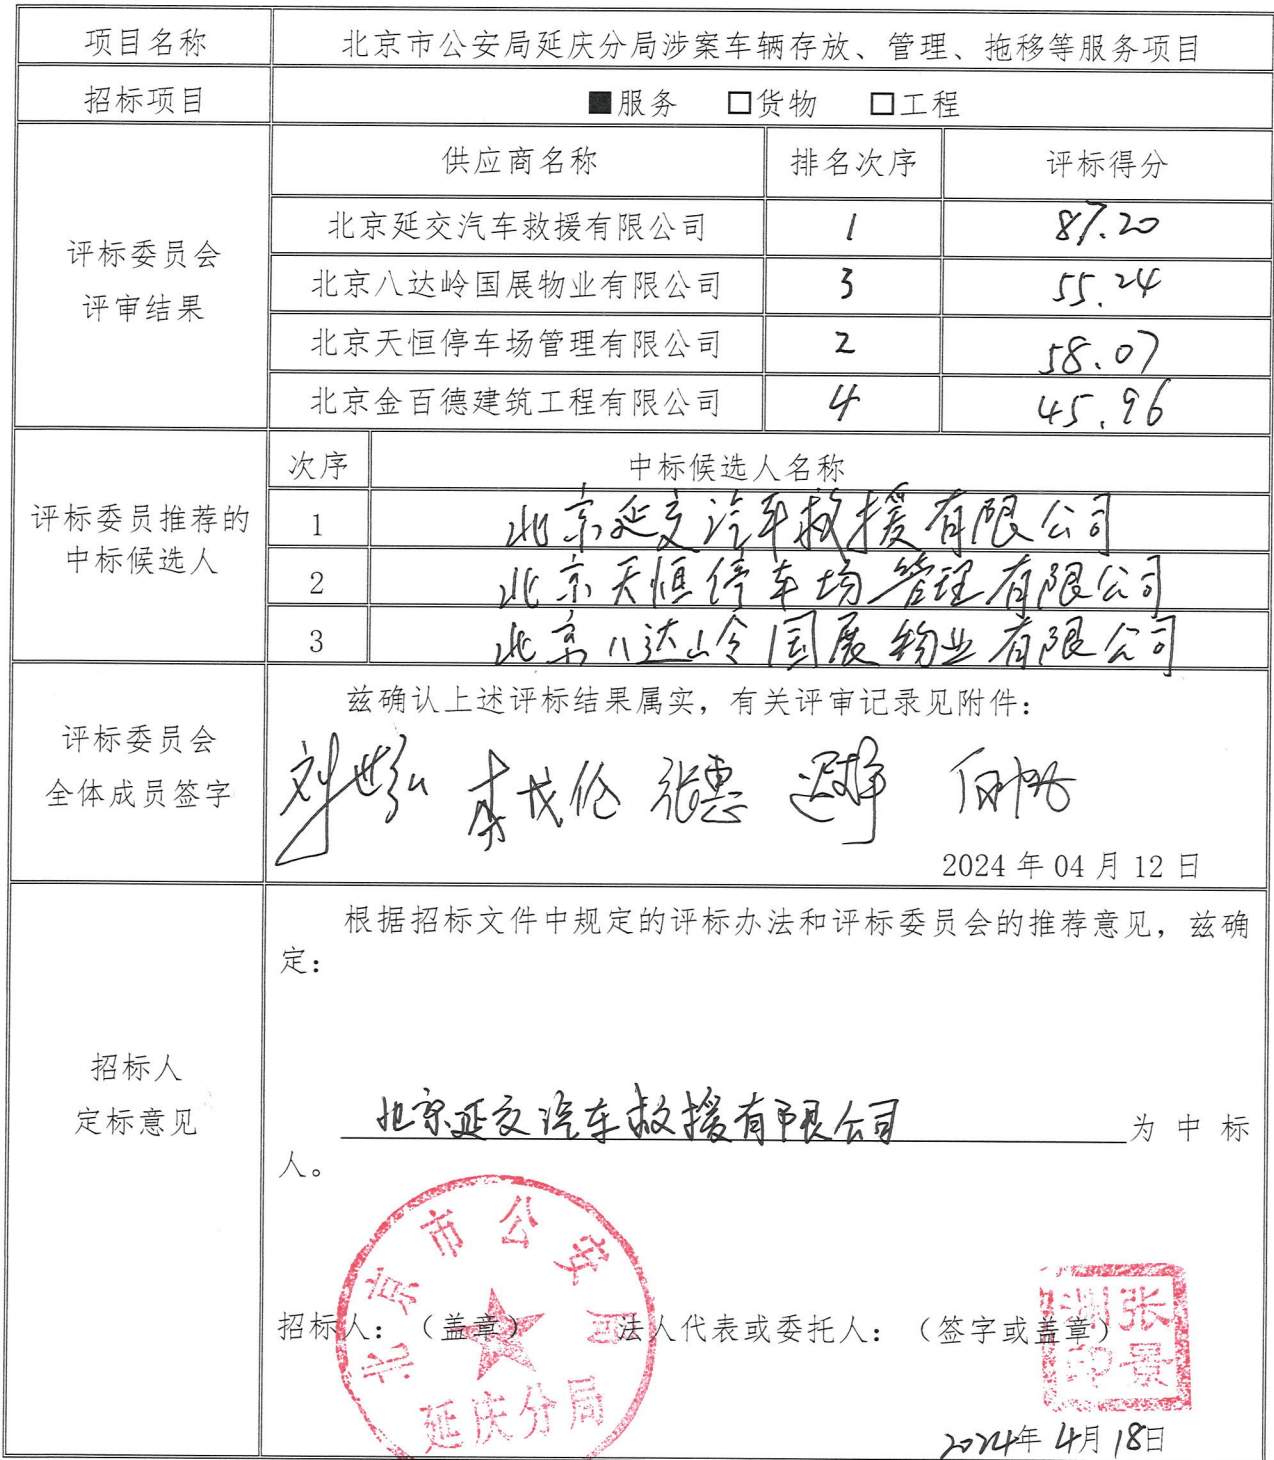 项目名称 北京市公安局延庆分局涉案车辆存放、管理、拖移等服务项目
招标项目 ■服务 □货物 □工程
评标委员会
评审结果
供应商名称 排名次序 评标得分
北京延交汽车救援有限公司 1 87.20
北京八达岭国展物业有限公司 3 55.24
北京天恒停车场管理有限公司 2 58.07
北京金百德建筑工程有限公司 4 45.96
评标委员推荐的
中标候选人
次序 中标候选人名称
1 北京延交汽车救援有限公司
2 北京天恒停车场管理有限公司
3 北京八达岭国展物业有限公司
评标委员会
全体成员签字
兹确认上述评标结果属实，有关评审记录见附件：
张惠
2024年04月12日
招标人
定标意见
根据招标文件中规定的评标办法和评标委员会的推荐意见，兹确
定：
北京延交汽车救援有限公司 为中标
人。
北京市公安局
延庆分局
招标人：（盖章） 法人代表或委托人：（签字或盖章）
张景渊印
2024年4月18日